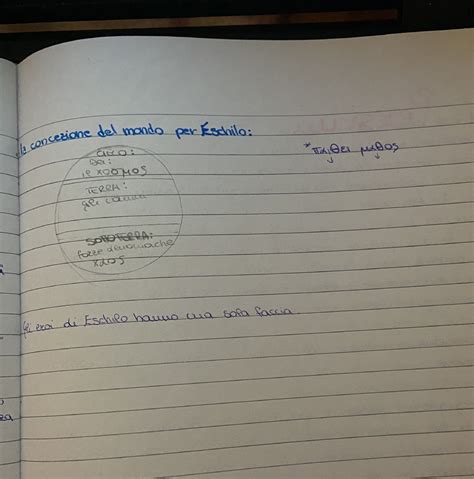 la concezione del mondo per Eschilo:
CIELO:
Dei:
il κόσμος
TERRA:
gli uomini
SOTTOTERRA:
forze demoniache
χάος
* παιθει μαθος
Gli eroi di Eschilo hanno una sola faccia.